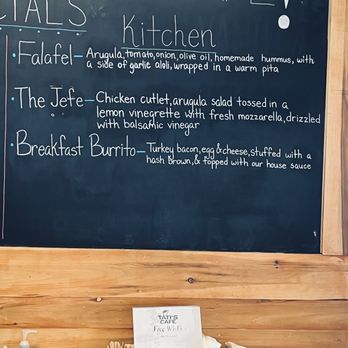 Kitchen
• Falafel - Arugula, tomato, onion, olive oil, homemade hummus, with
a side of garlic aioli, wrapped in a warm pita
• The Jefe - Chicken cutlet, arugula salad tossed in a
lemon vinegrette with fresh mozzarella, drizzled
with balsamic vinegar
• Breakfast Burrito - Turkey bacon, egg & cheese, stuffed with a
hash brown, & topped with our house sauce
TATI'S
CAFE
Free Wi-Fi